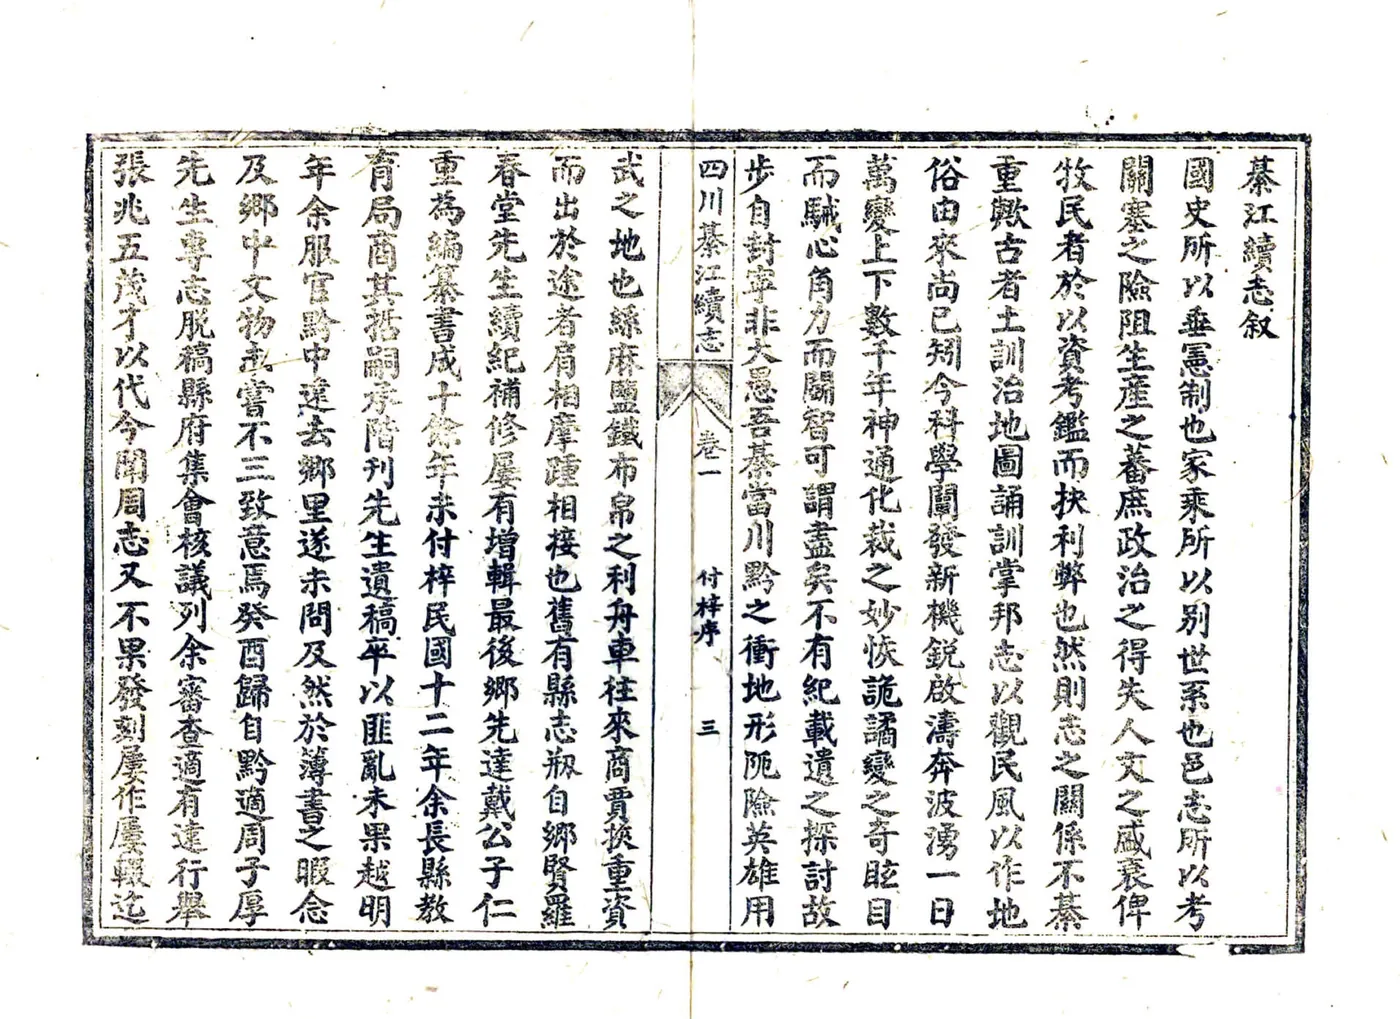 綦江續志叙
國史所以垂憲制也家乘所以别世系也邑志所以考
關塞之險阻生産之蕃庶政治之得失人文之盛衰俾
牧民者於以資考鑑而抉利弊也然則志之關係不綦
重歟古者土訓治地圖誦訓掌邦志以觀民風以作地
俗由來尚已矧今科學闡發新機鋭啟濤奔波湧一日
萬變上下數千年神通化裁之妙恢詭譎變之奇眩目
而駴心角力而鬭智可謂盡矣不有紀載遺之探討故
步自封寧非大愚吾綦當川黔之衝地形阨險英雄用
四川綦江續志 卷一 付梓序 三
武之地也絲麻鹽鐵布帛之利舟車往來商賈挾重資
而出於途者肩相摩踵相接也舊有縣志刱自鄉賢羅
春堂先生續紀補修屢有增輯最後鄉先達戴公子仁
重為編纂書成十餘年未付梓民國十二年余長縣教
育局商其哲嗣承階刊先生遺稿卒以匪亂未果越明
年余服官黔中違去鄉里遂未問及然於簿書之暇念
及鄉中文物未嘗不三致意焉癸酉歸自黔適周子厚
先生專志脱稿縣府集會核議列余審查適有達行舉
張兆五茂才以代今聞周志又不果發刻屢作屢輟迄